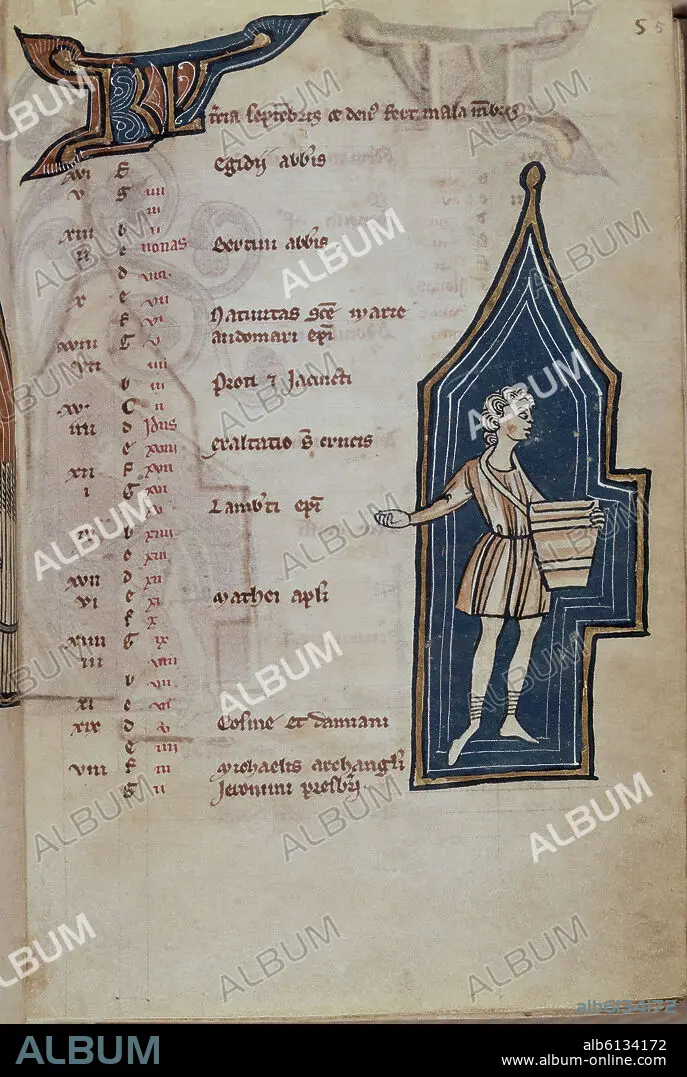 5 5
KL
tercia septembris et den' fert mala membris
xvi G Egidij abbis
v g iiii
iii
xiii b ii
ii c nonas Bertini abbis
d viii
x e vii Natiuitas sce marie
f vi audomari epi
xviii G v
vii iiii
b iii Proti 7 Jacincti
xv C ii
iiii d Idus
e xviii exaltatio s crucis
xii f xvii
i G xvi
xv Lamb'ti epi
b xiiii
xiii
xvii d xii
vi e xi Mathei apli
f x
xiiii G ix
iii viii
b vii
xi c vi
xix d v Cosme et damiani
e iiii
viii f iii Michaelis archangli
g ii Jeronimi presbri
ALBUM
alb6134172
ALBUM
alb6134172
www.album-online.com